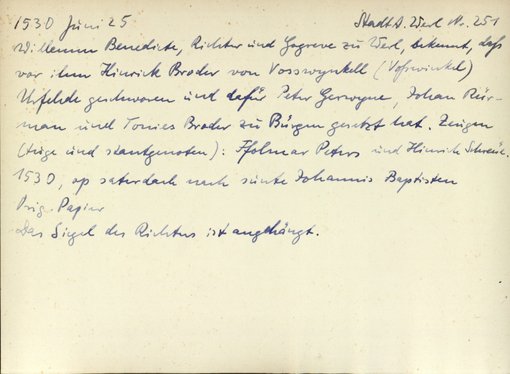 1530 Juni 25 Stadt A. Werl Nr. 251
Willemm Benedicte, Richter und Gogreve zu Werl, bekennt, daß
vor ihm Hinrick Broder von Vosswynkell (Voßwinkel)
Urfehde geschworen und dafür Peter Gerwyne, Johan Rür-
man und Tonies Broder zu Bürgen gesetzt hat. Zeugen
(tuge und stantgenoten): Ffolmar Peters und Hinrich
1530, op saterdach nach sunte Johannis Baptisten
Orig. Papier
Das Siegel des Richters ist angehängt.